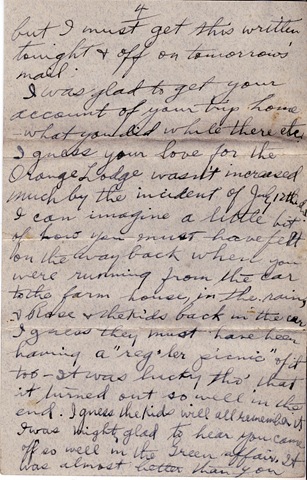 4
but I must get this written
tonight & off on tomorrow's
mail.
I was glad to get your
account of your trip home
- what you did while there etc.
I guess your love for the
Orange Lodge wasn't increased
much by the incident of July 12th
I can imagine a little bit
of how you must have felt
on the way back where you
were running from the car
to the farm house, in the rain
& Rose & the kids back in the car
I guess they must have been
having a "reg'ler picnic" of it
too - It was lucky tho' that
it turned out so well in the
end. I guess the kids will all remember it
I was might glad to hear you came
off so well in the Green affair. It
was almost better than you